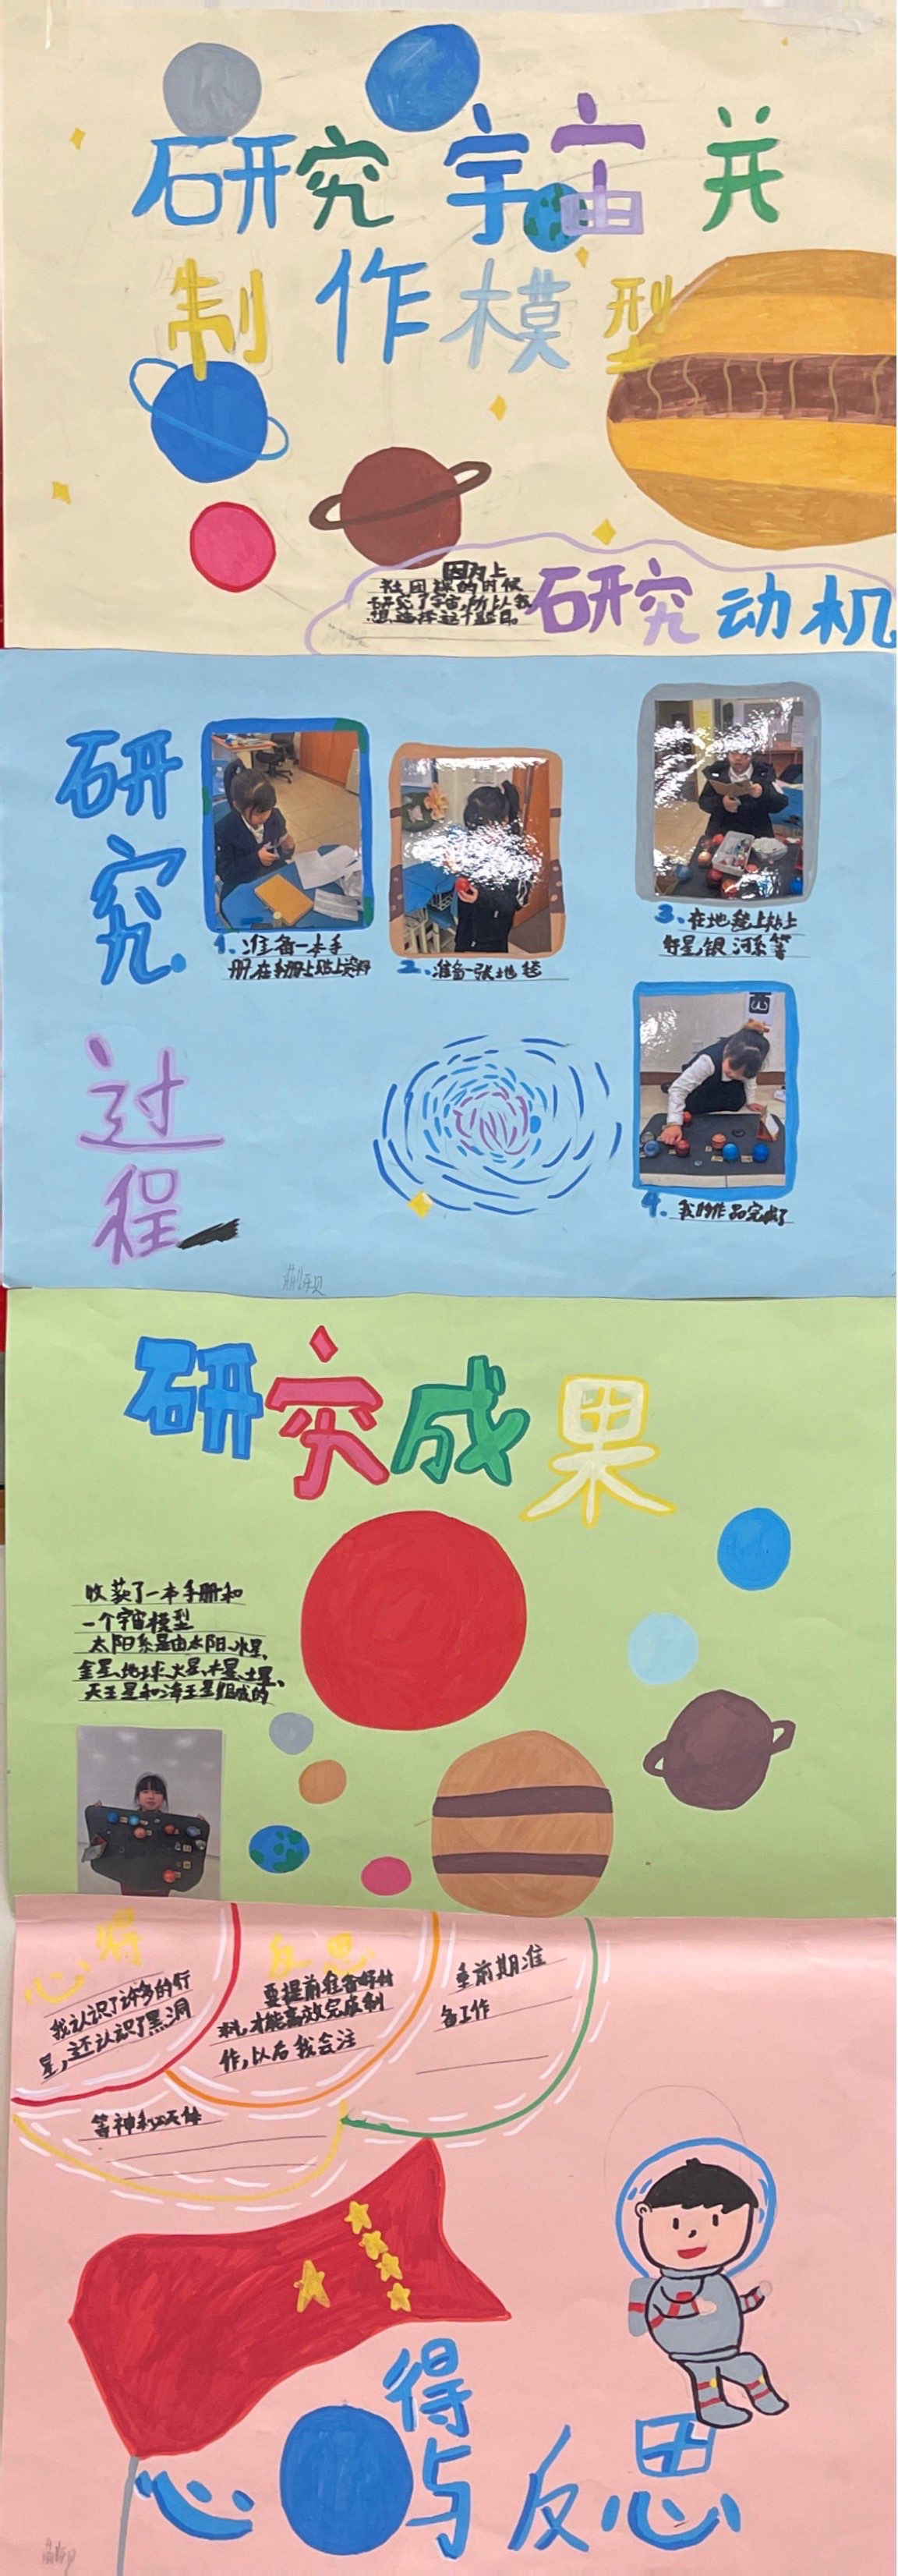 研究宇宙并
制作模型
因为上
社团课的时候
研究了宇宙,所以我
想选择这个题目。
研究动机
研究
过程
1.准备一本手
册,在手册上贴上资料
2.准备一张地毯
3.在地毯上贴上
行星,银河系等
西
4.我的作品完成了
研究成果
收获了一本手册和
一个宇宙模型
太阳系是由太阳、水星、
金星、地球、火星、木星、土星、
天王星和海王星组成的
心得
我认识了许多的行
星,还认识了黑洞
等神秘天体
反思
要提前准备好材
料,才能高效完成制
作,以后我会注
重前期准
备工作
心得与反思